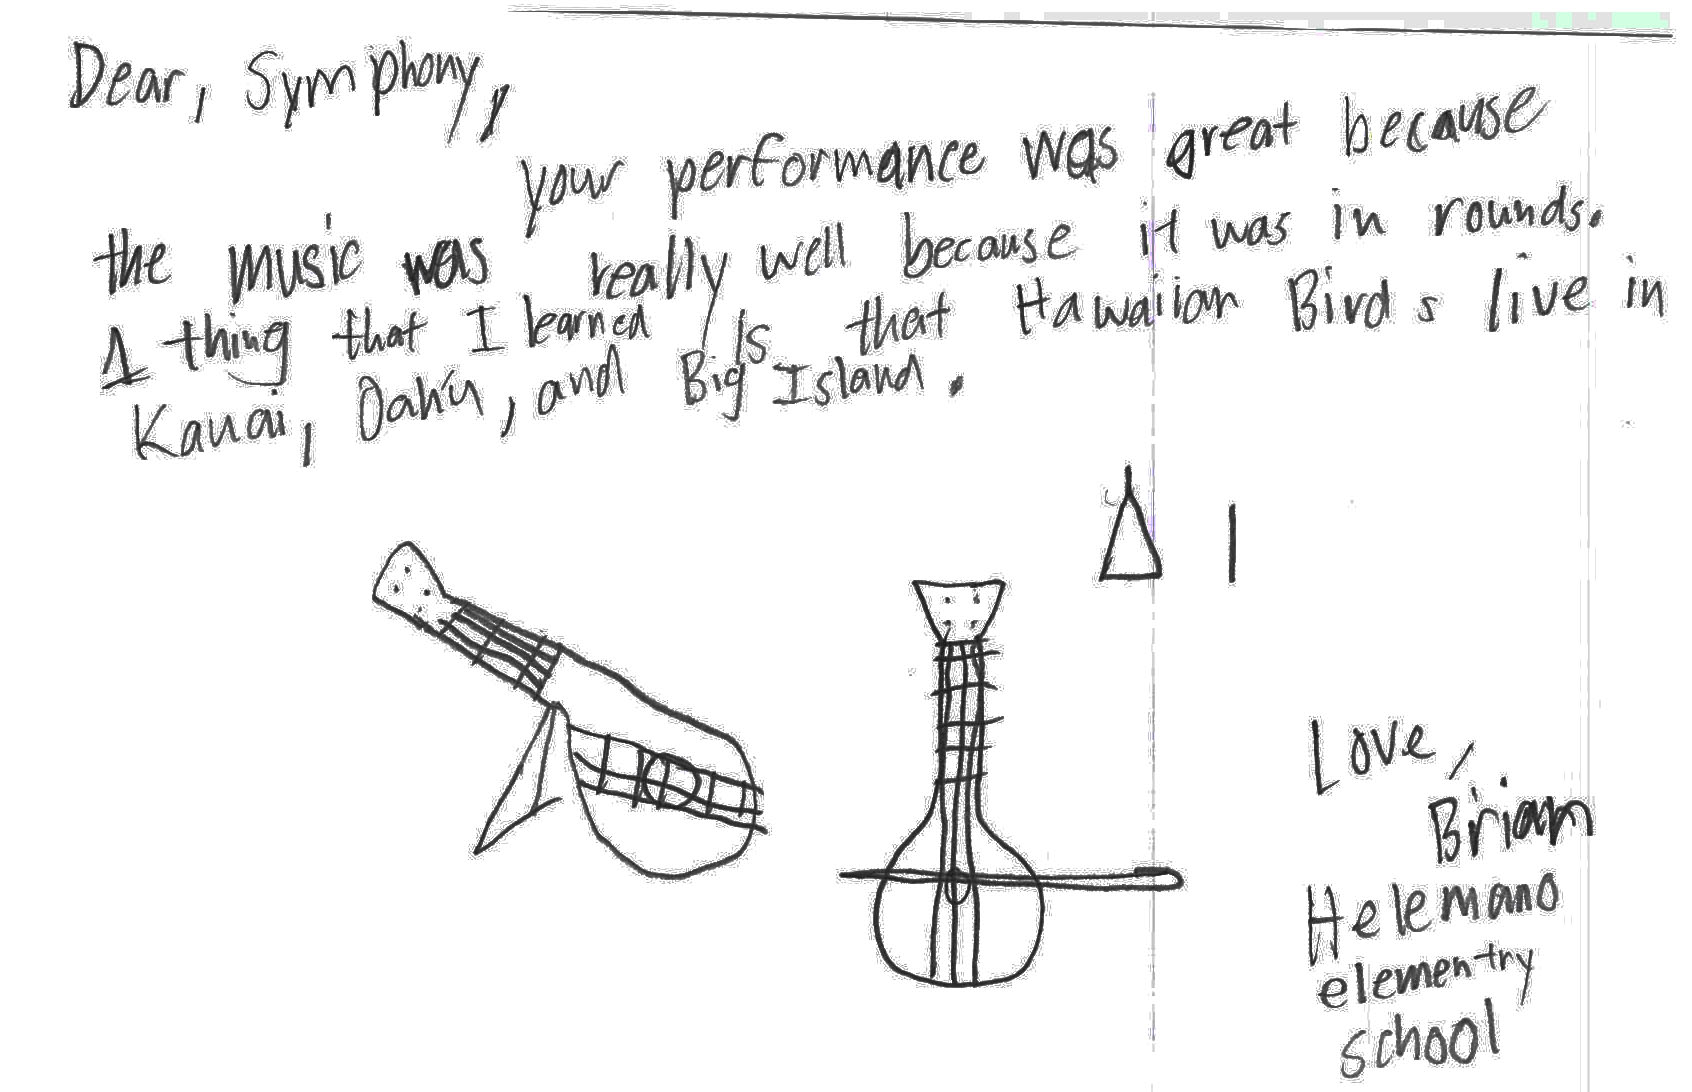 Dear, Symphony,
your performance was great because
the music was really well because it was in rounds.
1 thing that I learned is that Hawaiian Birds live in
Kauai, Oahu, and Big Island.
Love,
Brian
Helemano
elementry
school